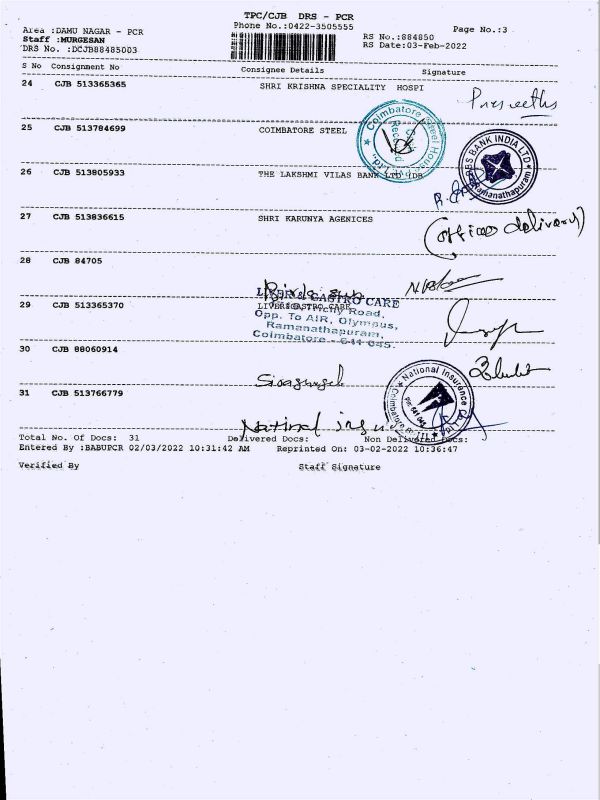 TPC/CJB DRS - PCR
Area :DAMU NAGAR - PCR
Phone No.:0422-3505555
Page No.:3
Staff :MURGESAN
RS No.:884850
DRS No. :DCJB88485003
RS Date:03-Feb-2022
S No Consignment No Consignee Details Signature
24 CJB 513365365 SHRI KRISHNA SPECIALITY HOSPI
25 CJB 513784699 COIMBATORE STEEL
Coimbatore Steel House
BANK INDIA LTD
Ramanathapuram
26 CJB 513805933 THE LAKSHMI VILAS BANK LTD
27 CJB 513836615 SHRI KARUNYA AGENICES
(office delivery)
28 CJB 84705
29 CJB 513365370 LIVER GASTRO CARE
LIVER GASTRO CARE
Trichy Road,
Opp. To AIR, Olympus,
Ramanathapuram,
Coimbatore - 641 045.
30 CJB 88060914
31 CJB 513766779
National Insurance
National
Total No. Of Docs: 31 Delivered Docs: Non Delivered Docs:
Entered By :BABUPCR 02/03/2022 10:31:42 AM Reprinted On: 03-02-2022 10:36:47
Verified By Staff Signature